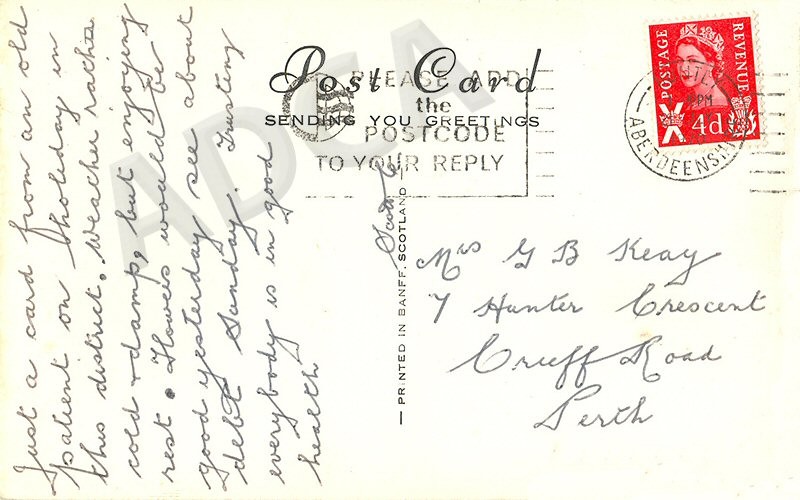 Post Card
SENDING YOU GREETINGS
PLEASE ADD
the
POSTCODE
TO YOUR REPLY
POSTAGE
REVENUE
4d
PM
ABERDEENSH
Just a card from an old
patient on holiday in
this district. Weather rather
cold & damp, but enjoying
rest. Flowers would be
good yesterday see about
debt Sunday. Trusting
everybody is in good
health
Scott C
PRINTED IN BANFF, SCOTLAND
Mrs G B Keay
7 Hunter Crescent
Crieff Road
Perth
ADCA